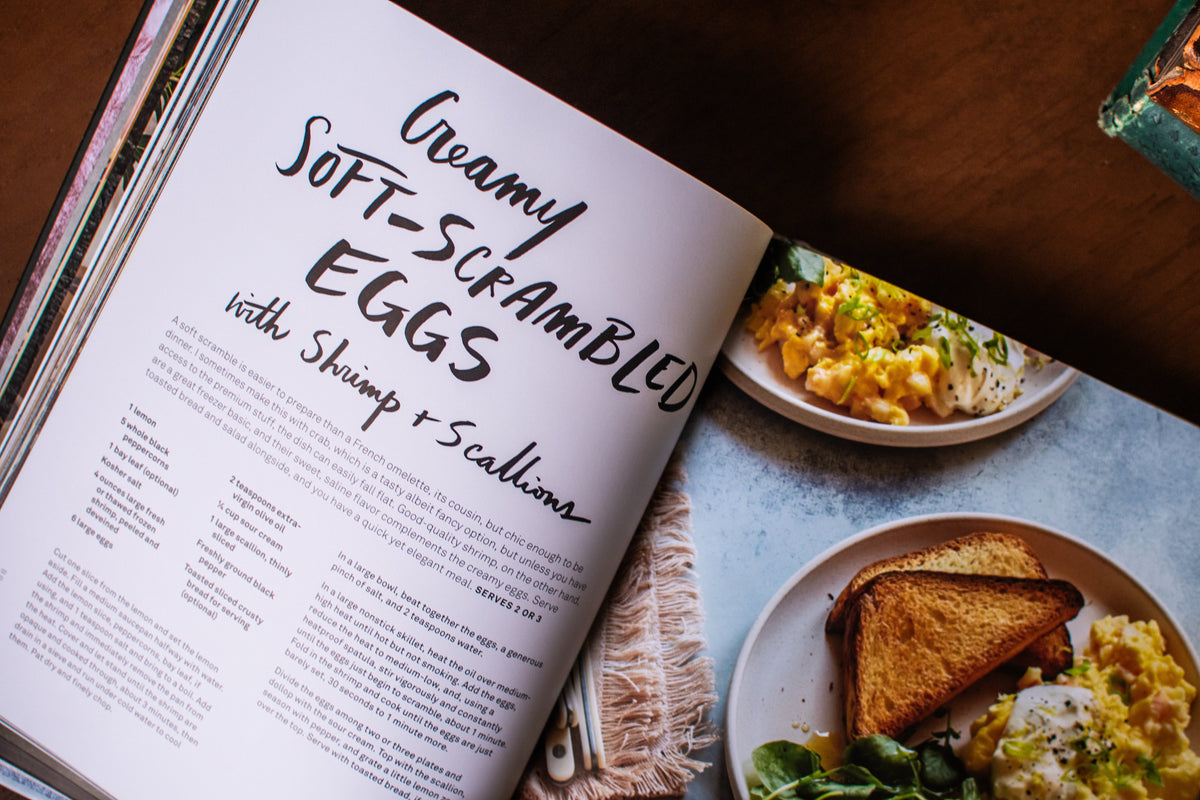 Creamy
SOFT-SCRAMBLED
EGGS
with Shrimp + Scallions
A soft scramble is easier to prepare than a French omelette, its cousin, but chic enough to be
dinner. I sometimes make this with crab, which is a tasty albeit fancy option, but unless you have
access to the premium stuff, the dish can easily fall flat. Good-quality shrimp, on the other hand,
are a great freezer basic, and their sweet, saline flavor complements the creamy eggs. Serve
toasted bread and salad alongside, and you have a quick yet elegant meal. SERVES 2 OR 3
1 lemon
5 whole black
peppercorns
1 bay leaf (optional)
Kosher salt
4 ounces large fresh
or thawed frozen
shrimp, peeled and
deveined
6 large eggs
2 teaspoons extra-
virgin olive oil
¼ cup sour cream
1 large scallion, thinly
sliced
Freshly ground black
pepper
Toasted sliced crusty
bread for serving
(optional)
Cut one slice from the lemon and set the lemon
aside. Fill a medium saucepan halfway with water.
Add the lemon slice, peppercorns, bay leaf, if
using, and 1 teaspoon salt and bring to a boil. Add
the shrimp and immediately remove the pan from
the heat. Cover and let stand until the shrimp are
opaque and cooked through, about 3 minutes, then
drain in a sieve and run under cold water to cool
them. Pat dry and finely chop.
In a large bowl, beat together the eggs, a generous
pinch of salt, and 2 teaspoons water.
In a large nonstick skillet, heat the oil over medium-
high heat until hot but not smoking. Add the eggs,
reduce the heat to medium-low, and, using a
heatproof spatula, stir vigorously and constantly
until the eggs just begin to scramble, about 1 minute.
Fold in the shrimp and cook until the eggs are just
barely set, 30 seconds to 1 minute more.
Divide the eggs among two or three plates and
dollop with the sour cream. Top with the scallion,
season with pepper, and grate a little lemon
over the top. Serve with toasted bread,